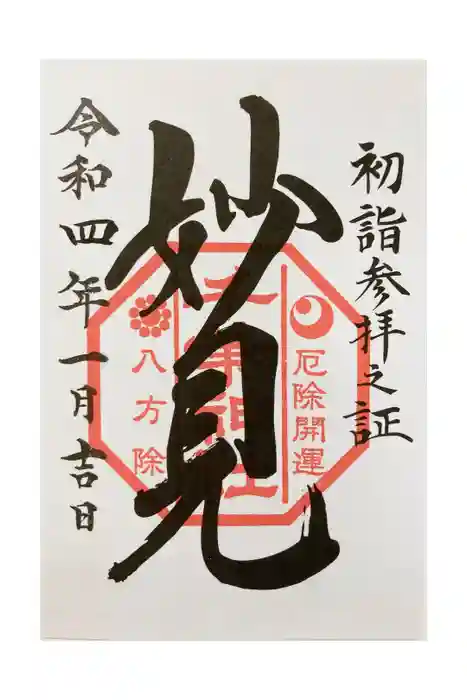 初詣参拝之証
厄除開運
妙見
神社
八方除
令和四年一月吉日